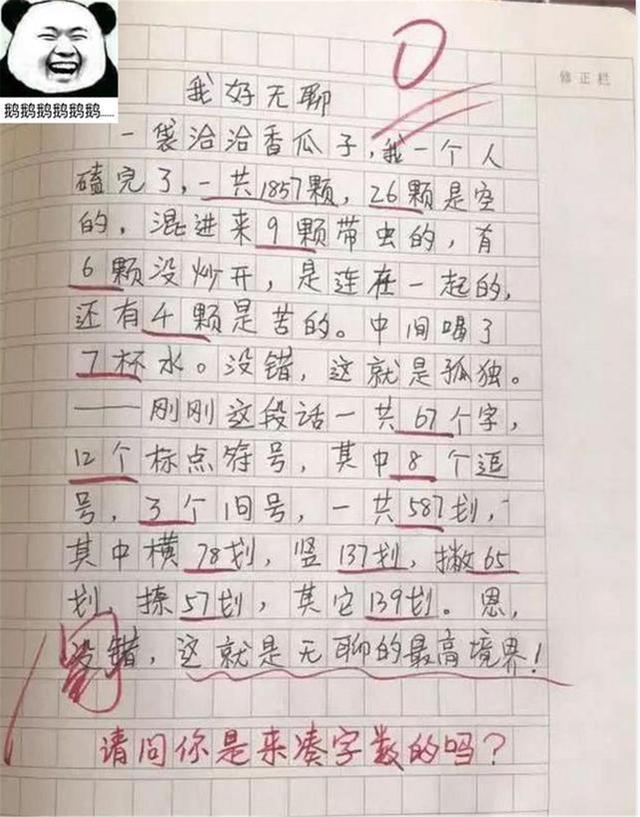 0
修正栏
鹅鹅鹅鹅鹅鹅.....
我好无聊
一袋洽洽香瓜子,我一个人
磕完了,一共1857颗,26颗是空
的,混进来9颗带虫的,有
6颗没炒开,是连在一起的,
还有4颗是苦的。中间喝了
7杯水。没错,这就是孤独。
——刚刚这段话一共67个字,
12个标点符号,其中8个逗
号,3个旧号,一共587划,
其中横78划,竖137划,撇65
划,捺57划,其它139划。恩,
没错,这就是无聊的最高境界!
请问你是来凑字数的吗?